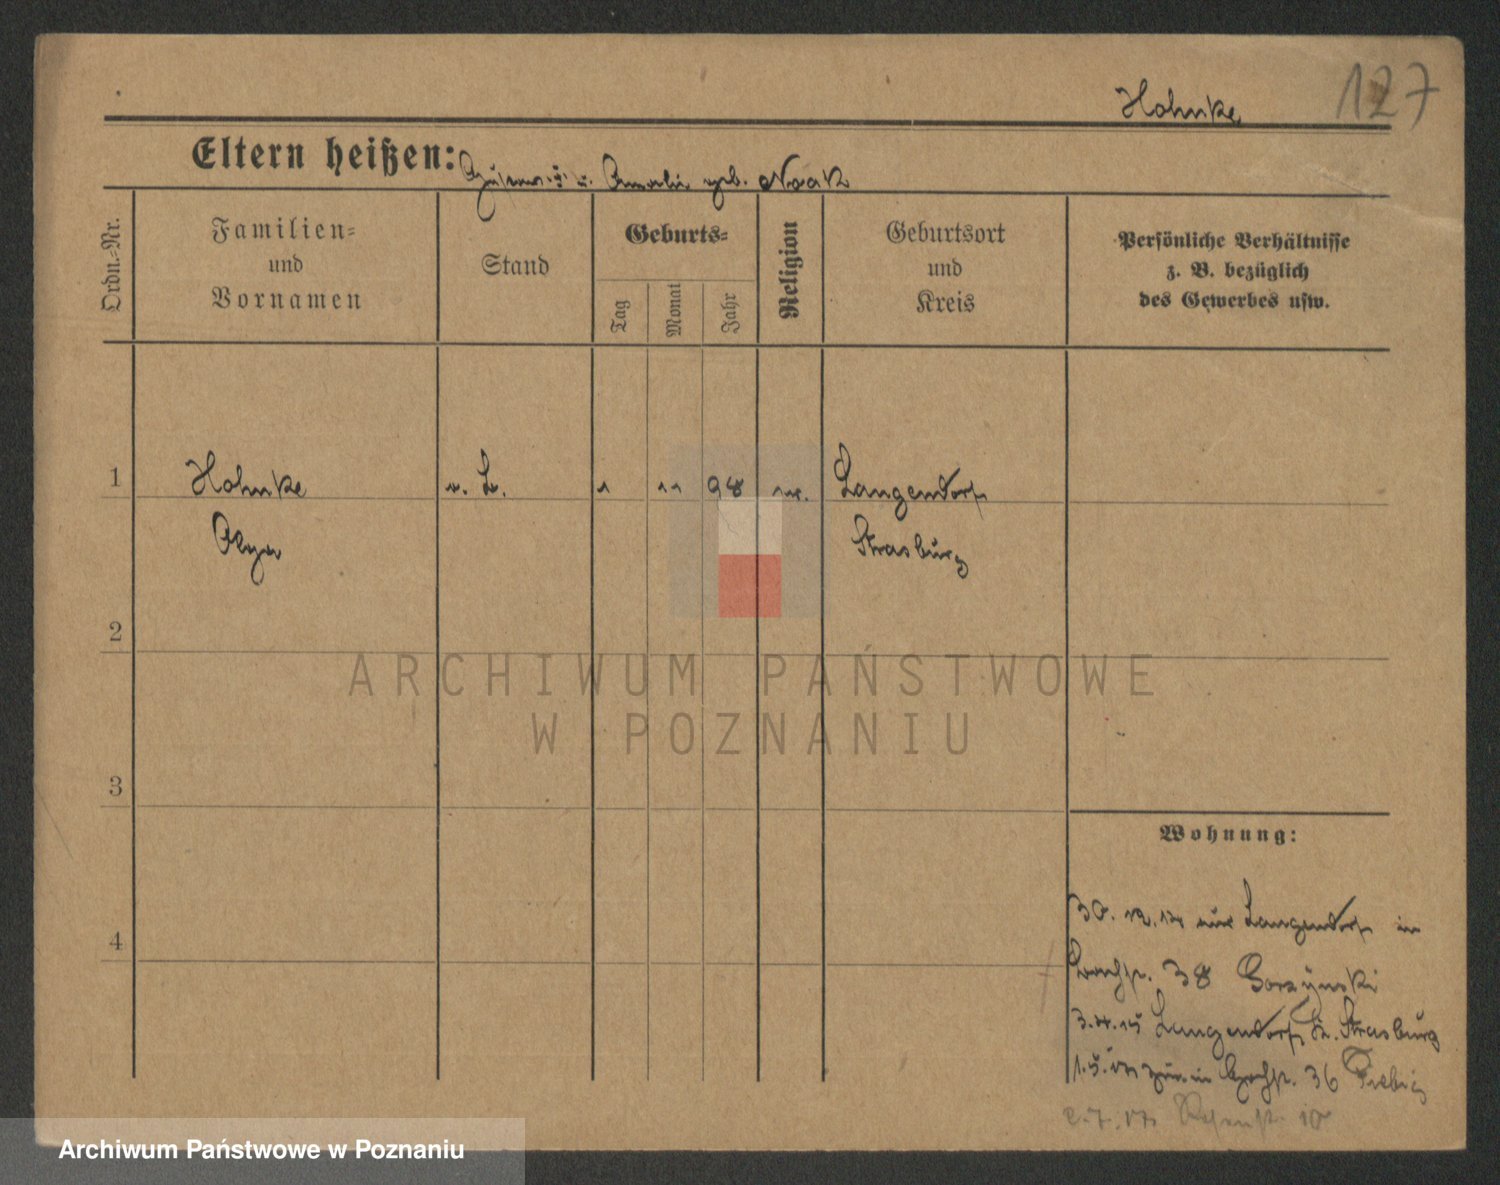 Hohnke 127
Eltern heißen: u. Amalie geb. Noak
Ordn.=Nr.
Familien=
und
Vornamen
Stand
Geburts=
Tag
Monat
Jahr
Religion
Geburtsort
und
Kreis
Persönliche Verhältnisse
z. B. bezüglich
des Gewerbes usw.
1 Hohnke 1 11 98 Langendorf
Olga Strasburg
2
3
4
Wohnung:
30. Langendorf in
38 Gorzynski
3.4.15 Langendorf Kr. Strasburg
36 Fiebig
2.7.17 10
ARCHIWUM PAŃSTWOWE
W POZNANIU
Archiwum Państwowe w Poznaniu